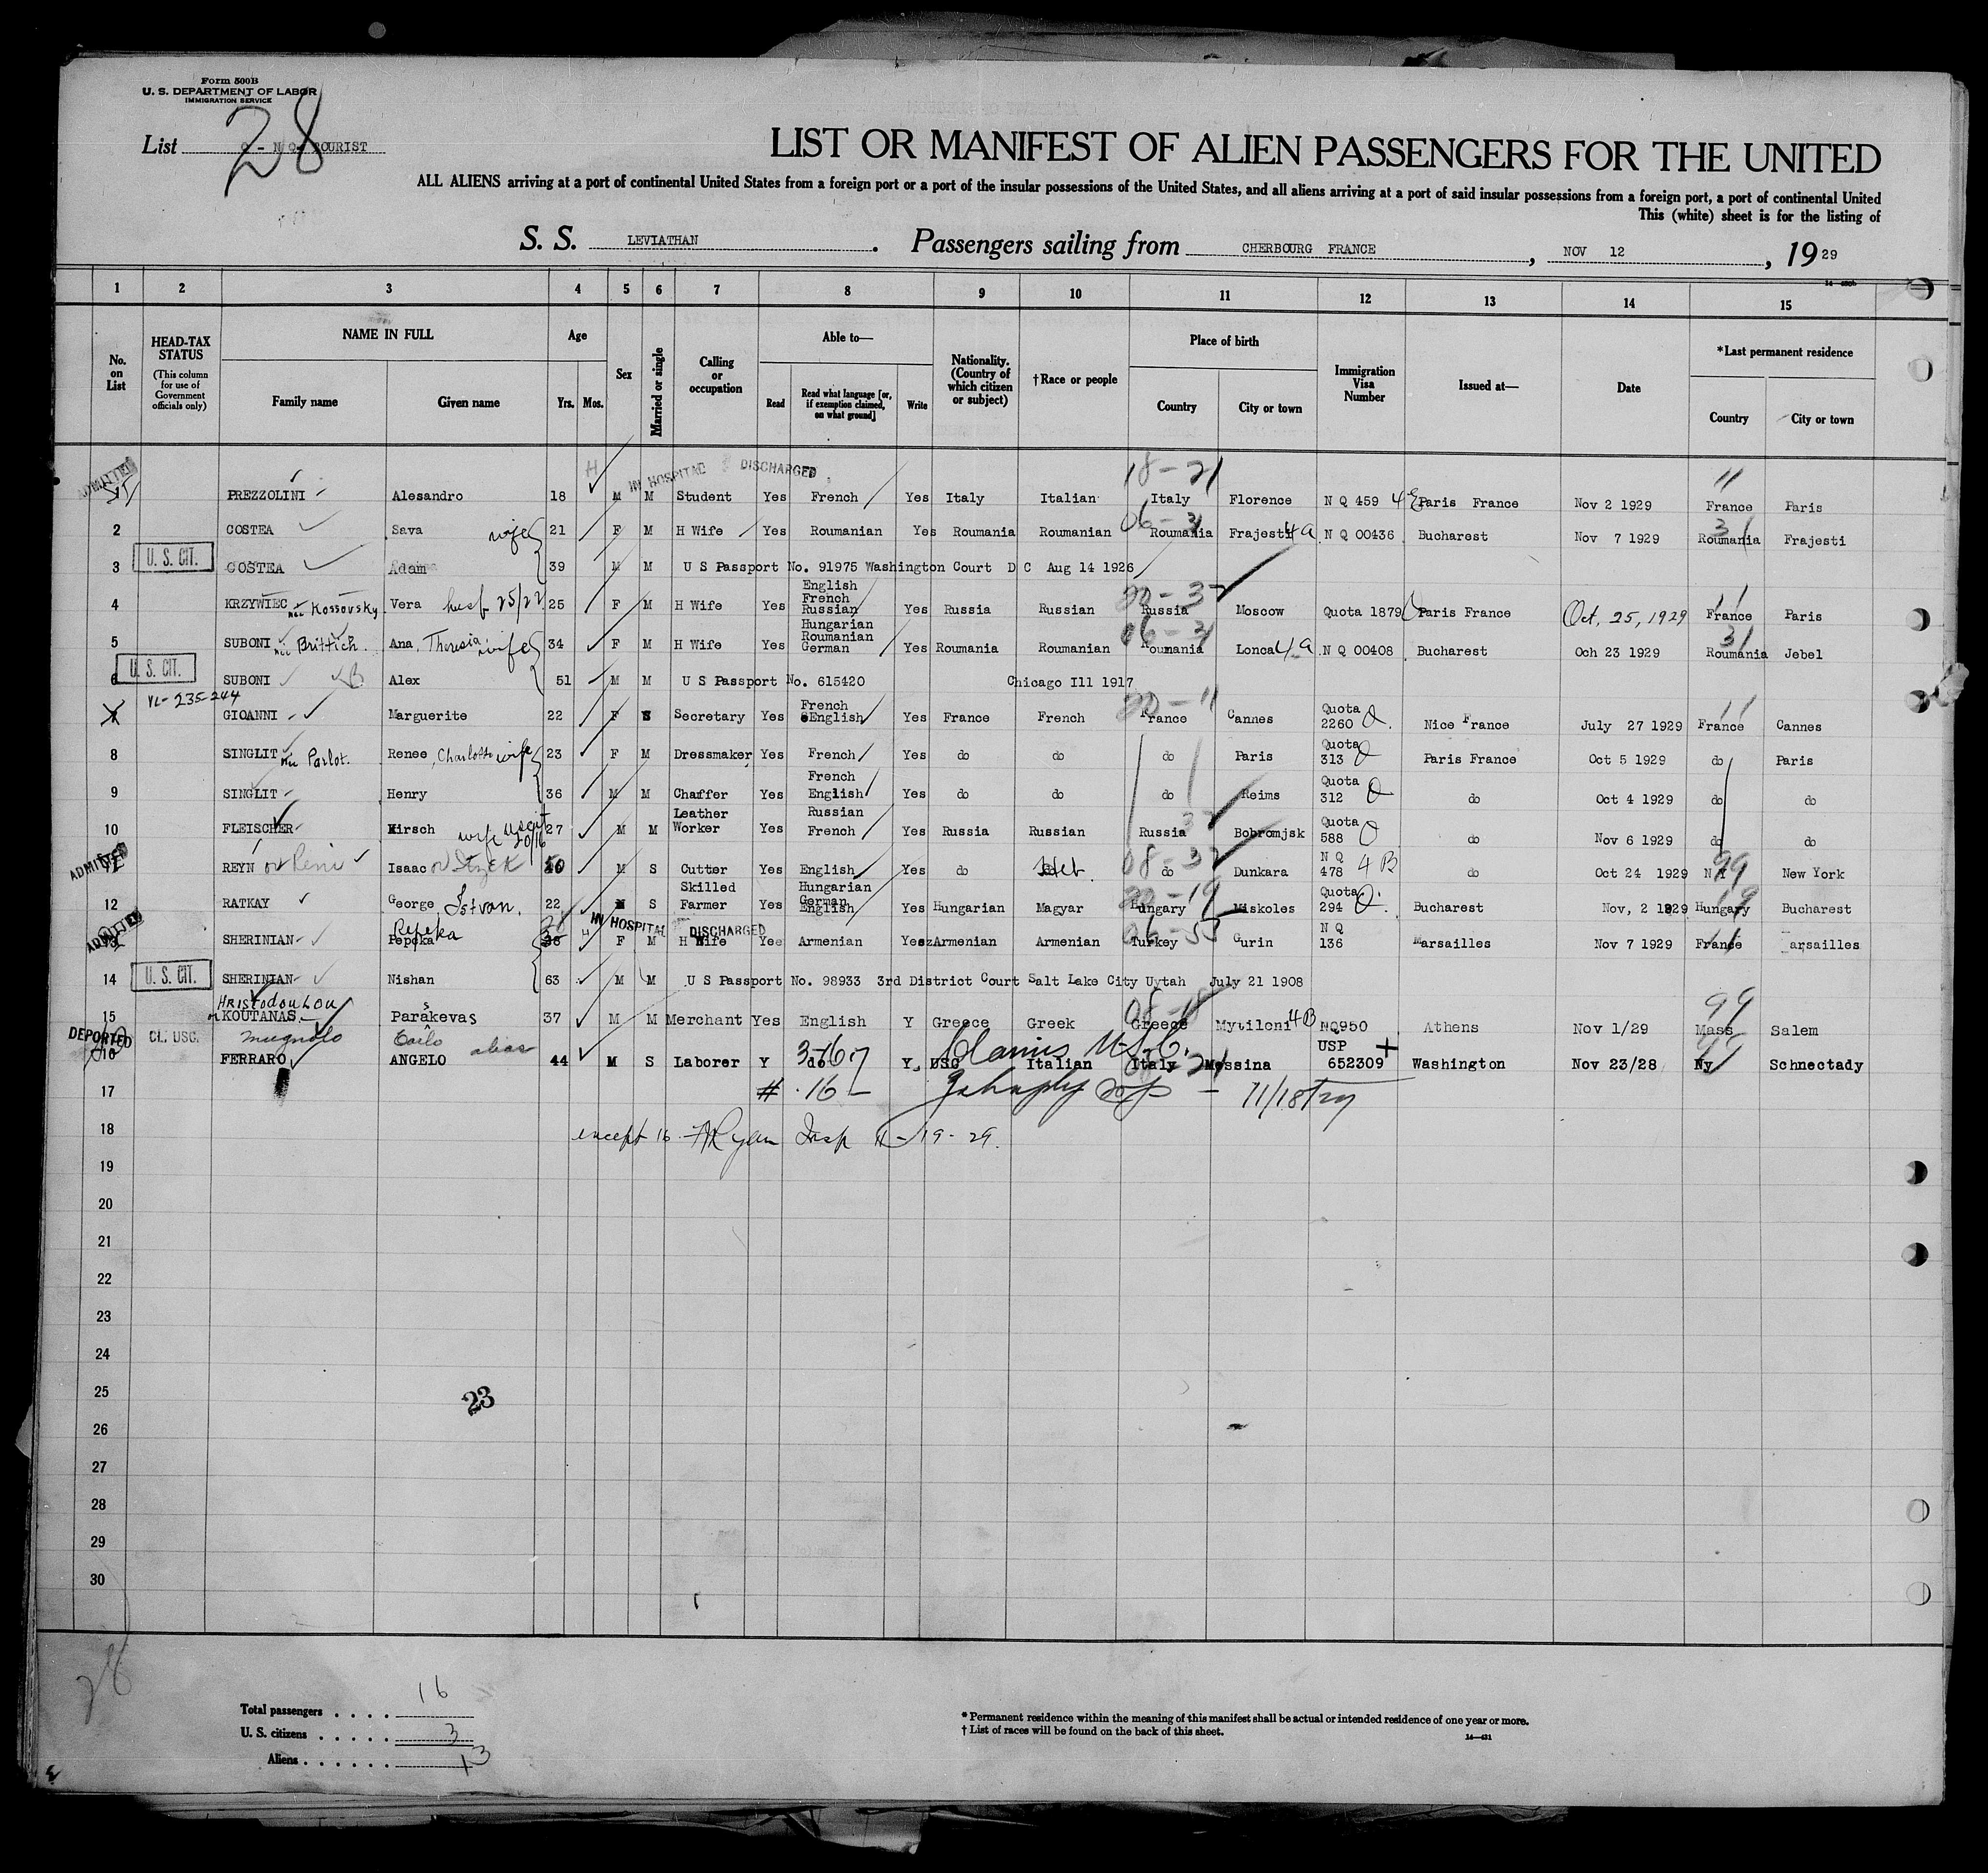 Form 500B
U. S. DEPARTMENT OF LABOR
IMMIGRATION SERVICE
List Q - N Q TOURIST
28
LIST OR MANIFEST OF ALIEN PASSENGERS FOR THE UNITED
ALL ALIENS arriving at a port of continental United States from a foreign port or a port of the insular possessions of the United States, and all aliens arriving at a port of said insular possessions from a foreign port, a port of continental United
This (white) sheet is for the listing of
S. S. LEVIATHAN. Passengers sailing from CHERBOURG FRANCE, NOV 12, 1929
1 2 3 4 5 6 7 8 9 10 11 12 13 14 15
No. on List
HEAD-TAX STATUS
(This column for use of Government officials only)
NAME IN FULL
Family name Given name
Age
Yrs. Mos.
Sex
Married or single
Calling or occupation
Able to—
Read
Read what language [or, if exemption claimed, on what ground]
Write
Nationality. (Country of which citizen or subject)
†Race or people
Place of birth
Country City or town
Immigration Visa Number
Issued at—
Date
*Last permanent residence
Country City or town
ADMITTED IN HOSPITAL DISCHARGED 18-21 11
PREZZOLINI Alesandro 18 M M Student Yes French Yes Italy Italian Italy Florence N Q 459 Paris France Nov 2 1929 France Paris
2 COSTEA Sava wife 21 F M H Wife Yes Roumanian Yes Roumania Roumanian 06-31 Roumania Frajesti 4a N Q 00436 Bucharest Nov 7 1929 31 Roumania Frajesti
U. S. CIT.
3 COSTEA Adam 39 M M U S Passport No. 91975 Washington Court D C Aug 14 1926
4 KRZYWIEC nee Kossovsky Vera husb 25/22 25 F M H Wife Yes English French Russian Yes Russia Russian Russia Moscow Quota 1879 Paris France Oct, 25, 1929 France Paris
5 SUBONI nee Brittich Ana, Theresia wife 34 F M H Wife Yes Hungarian Roumanian German Yes Roumania Roumanian 06-31 oumania Lonca 4a N Q 00408 Bucharest Och 23 1929 31 Roumania Jebel
U. S. CIT.
6 SUBONI Alex 51 M M U S Passport No. 615420 Chicago Ill 1917
VL-235-244
7 GIOANNI Marguerite 22 F S Secretary Yes French English Yes France French France Cannes Quota 2260 Nice France July 27 1929 France Cannes
8 SINGLIT nee Parlot. Renee, Charlotte wife 23 F M Dressmaker Yes French Yes do do do Paris Quota 313 Paris France Oct 5 1929 do Paris
9 SINGLIT Henry 36 M M Chaffer Yes French English Yes do do do Reims Quota 312 do Oct 4 1929 do do
10 FLEISCHER Hirsch wife 27 M M Leather Worker Yes Russian French Yes Russia Russian Russia Bobromjsk Quota 588 do Nov 6 1929 do do
ADMITTED REYN or Isaac or Itzek M S Cutter Yes English Yes do Heb. 08-37 do Dunkara N Q 478 4B do Oct 24 1929 99 New York
12 RATKAY George Istvan. 22 M S Skilled Farmer Yes Hungarian German English Yes Hungarian Magyar Hungary Miskoles Quota 294 Bucharest Nov, 2 1929 Hungary Bucharest
ADMITTED IN HOSPITAL DISCHARGED
SHERINIAN Pepeka Repeka F M H Wife Yes Armenian Yes Armenian Armenian 06-55 Turkey Gurin N Q 136 Marsailles Nov 7 1929 France arsailles
14 U. S. CIT. SHERINIAN Nishan 63 M M U S Passport No. 98933 3rd District Court Salt Lake City Uytah July 21 1908
HRISTODOULOU
15 or KOUTANAS Parakevas 37 M M Merchant Yes English Y Greece Greek Greece Mytileni 4B NQ950 Athens Nov 1/29 99 Mass Salem
DEPORTED CL. USC. alias
16 FERRARO ANGELO 44 M S Laborer Y do Y USC Italian Italy Messina USP 652309 Washington Nov 23/28 Ny Schnectady
17 # 16 — 11/18
18 except 16 Ryan Insp 11-19-29.
19
20
21
22
23
24
25
23
26
27
28
29
30
28
Total passengers .... 16
U. S. citizens ..... 3
Aliens ...... 13
* Permanent residence within the meaning of this manifest shall be actual or intended residence of one year or more.
† List of races will be found on the back of this sheet.